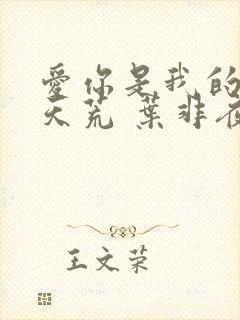 愛你是我的
天荒 葉非夜
王文荣